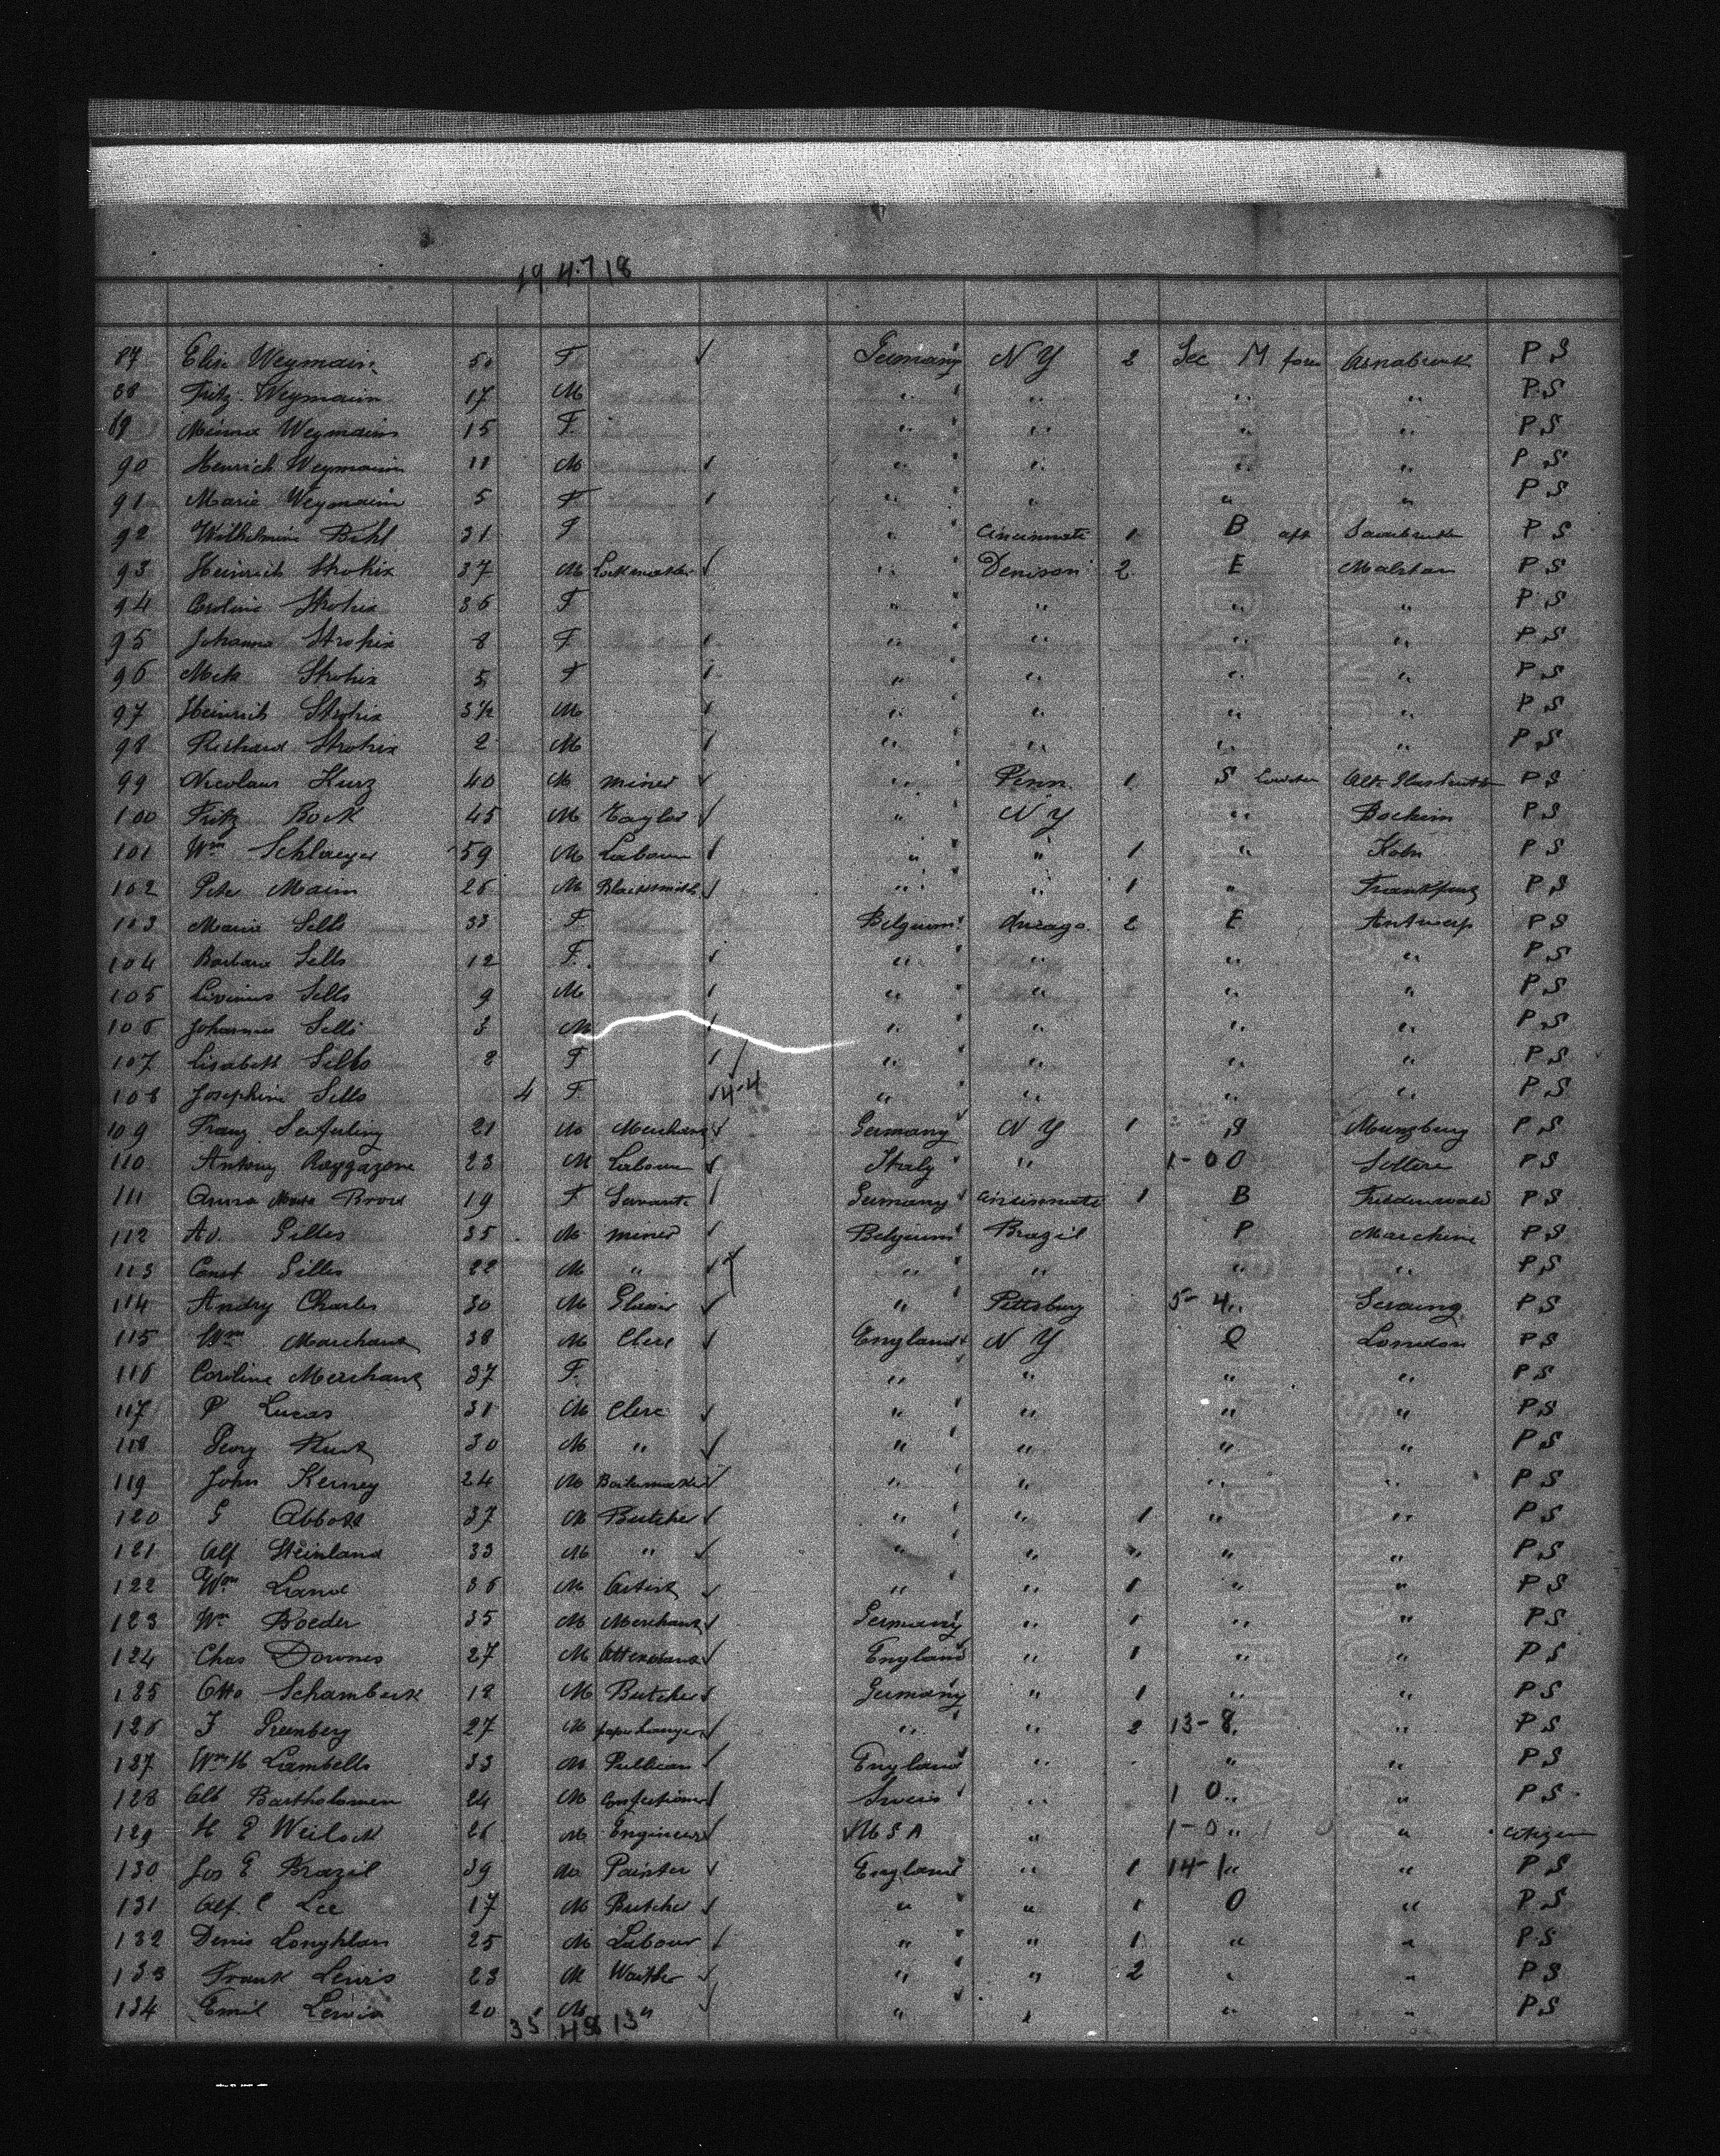 19 4.7 18
87 Elise Weymann 50 F Germany N Y 2 Sec M forw Osnabruck P S
88 Fritz Weymann 17 M " " " " P S
89 Minna Weymann 15 F " " " " P S
90 Henrich Weymann 11 M " " " " P S
91 Marie Weymann 5 F " " " " P S
92 Wilhelmine 31 F " Cincinnate 1 B aft P S
93 Heinrich Strohix 37 M Lockmaker " Denison 2 E Malstan P S
94 Caroline Strohix 36 F " " " " P S
95 Johanna Strohix 8 F " " " " P S
96 Meta Strohix 5 F " " " " P S
97 Heinrich Strohix 3½ M " " " " P S
98 Richard Strohix 2 M " " " " P S
99 Nicolaus Kurz 40 M miner " Penn. 1 S P S
100 Fritz Bock 45 M Taylor " N Y " Bochim P S
101 Wm Schlaeger 59 M Labour " " 1 " Köln P S
102 Pete Mann 26 M Blacksmith " " 1 " Frankfurt P S
103 Maria Sells 33 F Belgium Chicago 2 E Antwerp P S
104 Barbara Sells 12 F " " " " P S
105 Livinus Sells 9 M " " " " P S
106 Johannes Sells 3 M " " " " P S
107 Lisabeth Sells 8 F " " " " P S
108 Josephine Sells 4 F 4-4 " " " " P S
109 Franz Seiferling 21 M Merchant Germany N Y 1 S Munzburg P S
110 Antony Raggazone 23 M Labour Italy " 1-00 P S
111 Anna Brod 19 F Servant Germany Cincinnate 1 B Friedenwald P S
112 Ad. Gilles 35 M miner Belgium Brazil P Marchine P S
113 Const Gilles 22 M " " " " " P S
114 Andry Charles 30 M " Pittsburg 5-4 " Seraing P S
115 Wm Marchant 38 M Clerc England N Y O London P S
116 Caroline Merchant 37 F " " " " P S
117 P Lucas 31 M Clerc " " " " P S
118 Georg 30 M " " " " " P S
119 John Kerney 24 M Boilermaker " " " " P S
120 G Abbott 37 M Butcher " " 1 " " P S
121 Alf Steinland 33 M " " " " " " P S
122 Wm Land 36 M Artist " " 1 " " P S
123 Wm Boeder 35 M Merchant Germany " 1 " " P S
124 Chas Downes 27 M Attendant England " 1 " " P S
125 Otto Schamberk 18 M Butcher Germany " 1 " " P S
126 J Greenberg 27 M paperhanger " " 2 13-8 " P S
127 Wm H Lambells 33 M Publican England " " " P S
128 Alb Bartholomew 24 M Confectioner " 1 0 " " P S
129 H P 26 M Engineer U S A " 1-0 " " citizen
130 Jos E Brazil 39 M Painter England " 1 14-1 " " P S
131 Alf. C Lee 17 M Butcher " " 1 O " P S
132 Denis Loughlan 25 M Labour " " 1 " " P S
133 Frank Lewis 23 M Waither " " 2 " " P S
134 Emil Lewis 20 M " " " " " P S
35 48 13